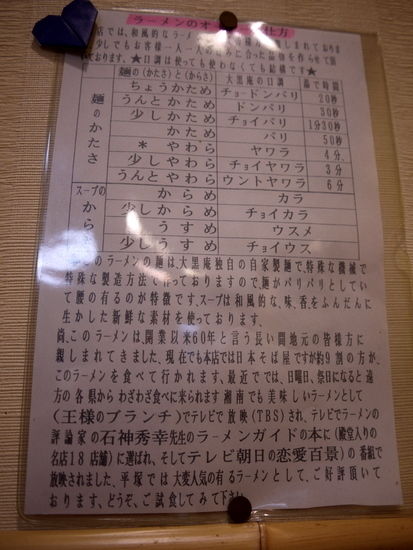 ラーメンのオ 仕方
店では、和風的なラーメン
少しでもお客様一人一人の 好みに合った品物を作らせて頂
★口調は使っても使わなくても結構です★
麺の(かたさ)と(からさ) 大黒庵の口調 茹で時間
麺のかたさ
ちょうかため チョードンバリ 20秒
うんとかため ドンバリ 30秒
少しかため チョイバリ 1分30秒
かため バリ 50秒
* やわら ヤワラ 4分
少しやわら チョイヤワラ 3分
うんとやわら ウントヤワラ 6分
スープのからさ
からめ カラ
少しからめ チョイカラ
うすめ ウスメ
少しうすめ チョイウス
このラーメンの麺は、大黒庵独自の自家製麺で、特殊な機械で
特殊な製造方法で作っておりますので、麺がバリバリとしてい
て腰の有るのが特徴です、スープは和風的な、味、香、をふんだんに
生かした新鮮な素材を使っております、
尚、このラーメンは、開業以来60年と言う長い間地元の皆様方に
親しまれてきました、現在でも本店では日本そば屋ですが約9割の方が、
このラーメンを食べて行かれます、最近では、日曜日、祭日になると遠
方の各県からわざわざ食べに来られます湘南でも美味しいラーメンとして
(王様のブランチ)でテレビで放映(TBS)され、テレビでラーメンの
評論家の石神秀幸先生のラーメンガイドの本に(殿堂入りの
名店18店舗)に選ばれ、そしてテレビ朝日の恋愛百景)の番組で
放映されました、平塚では大変人気の有るラーメンとして、ご好評頂いて
おります、どうぞ、ご試食してみて下さい